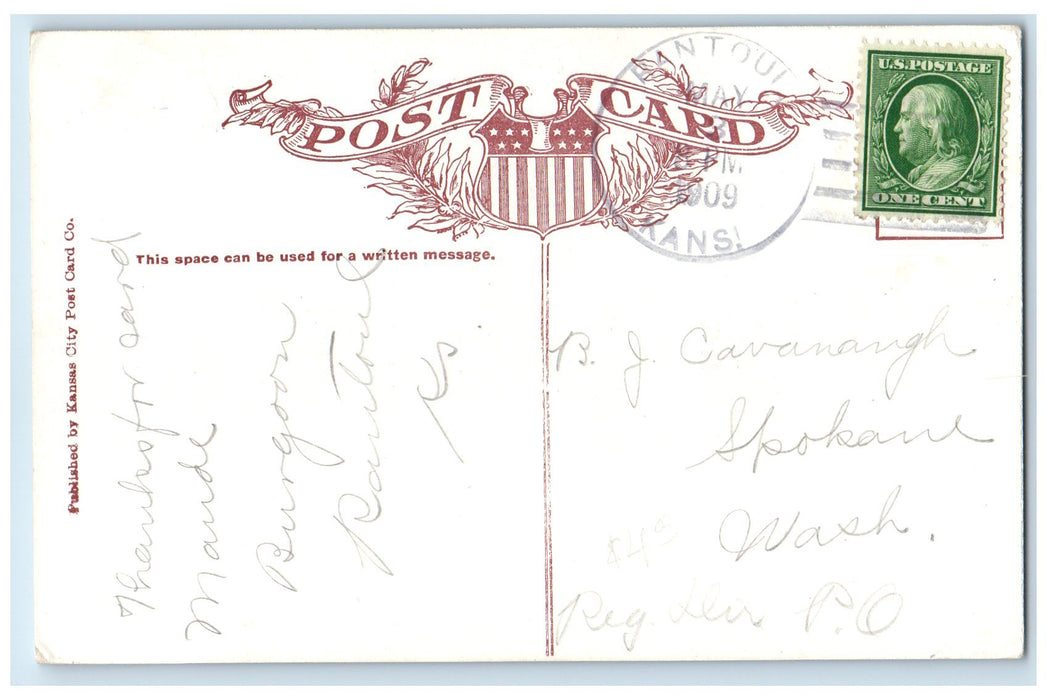 POST CARD
RANTOUL
MAY
PM
1909
KANS.
U.S. POSTAGE
ONE CENT
Published by Kansas City Post Card Co.
This space can be used for a written message.
Thanks for card
Maude
Burgoon
Rantoul
Ks
B. J. Cavanaugh
Spokane
Wash.
$4
Reg. Div P.O